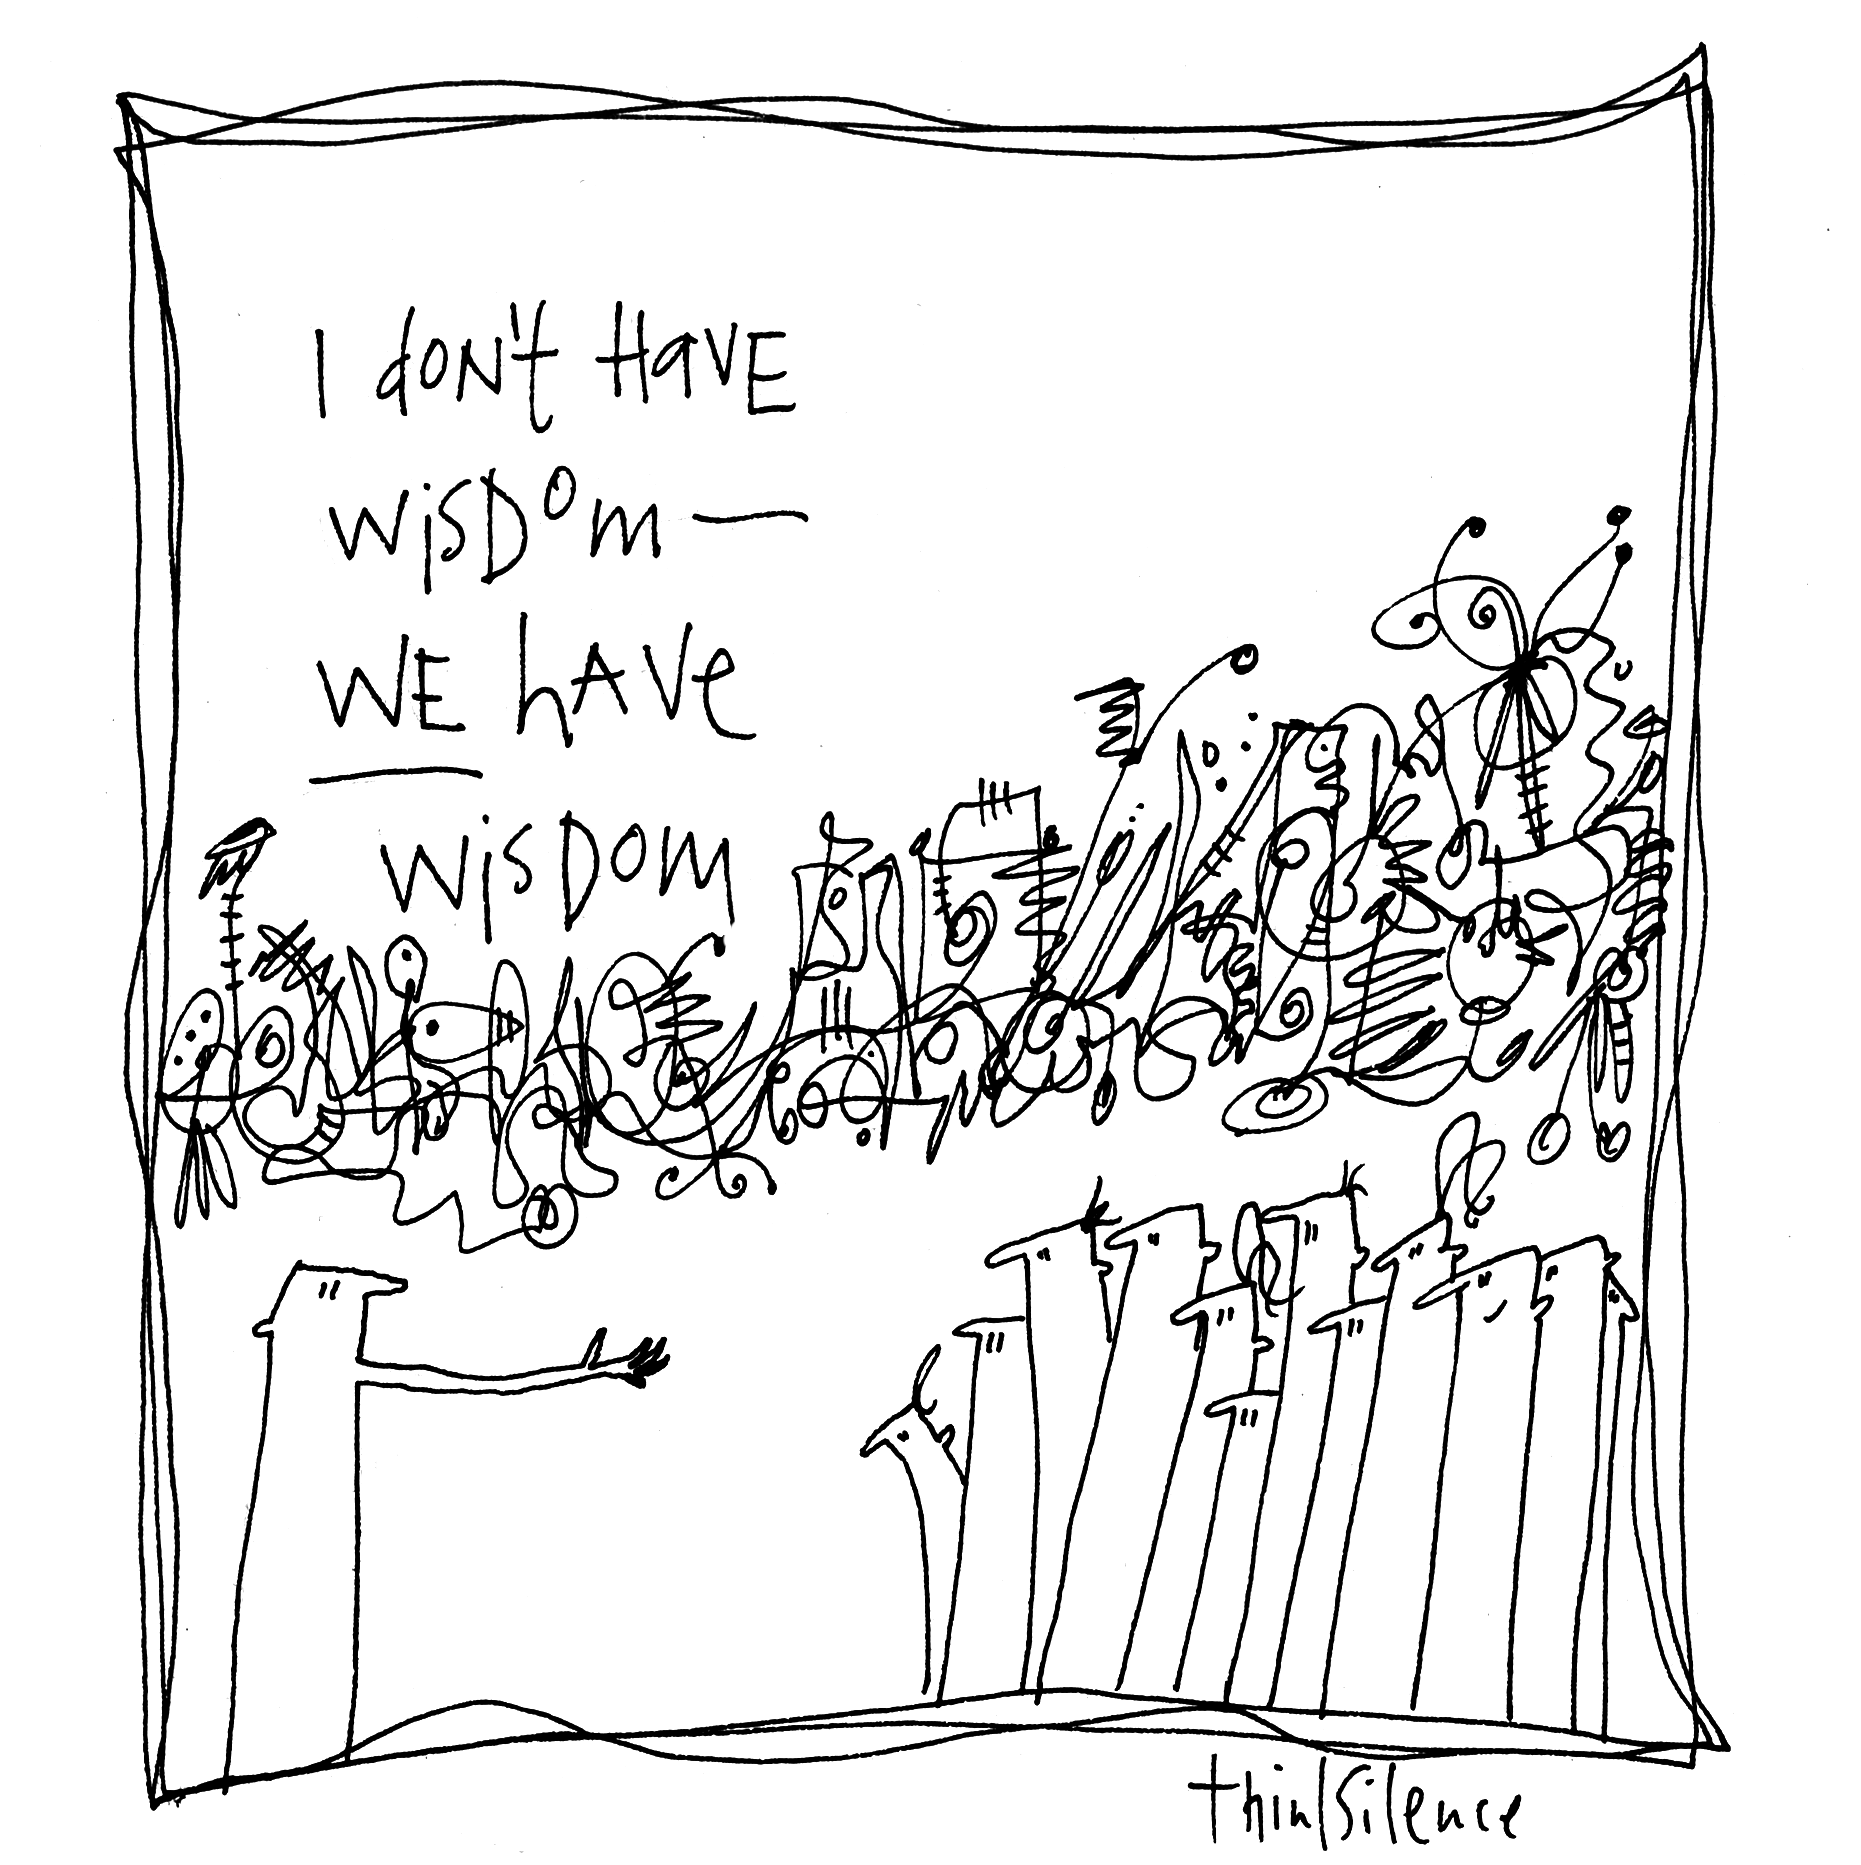 I don't Have
wisDom —
WE hAVe
wisDOM
thinkSilence